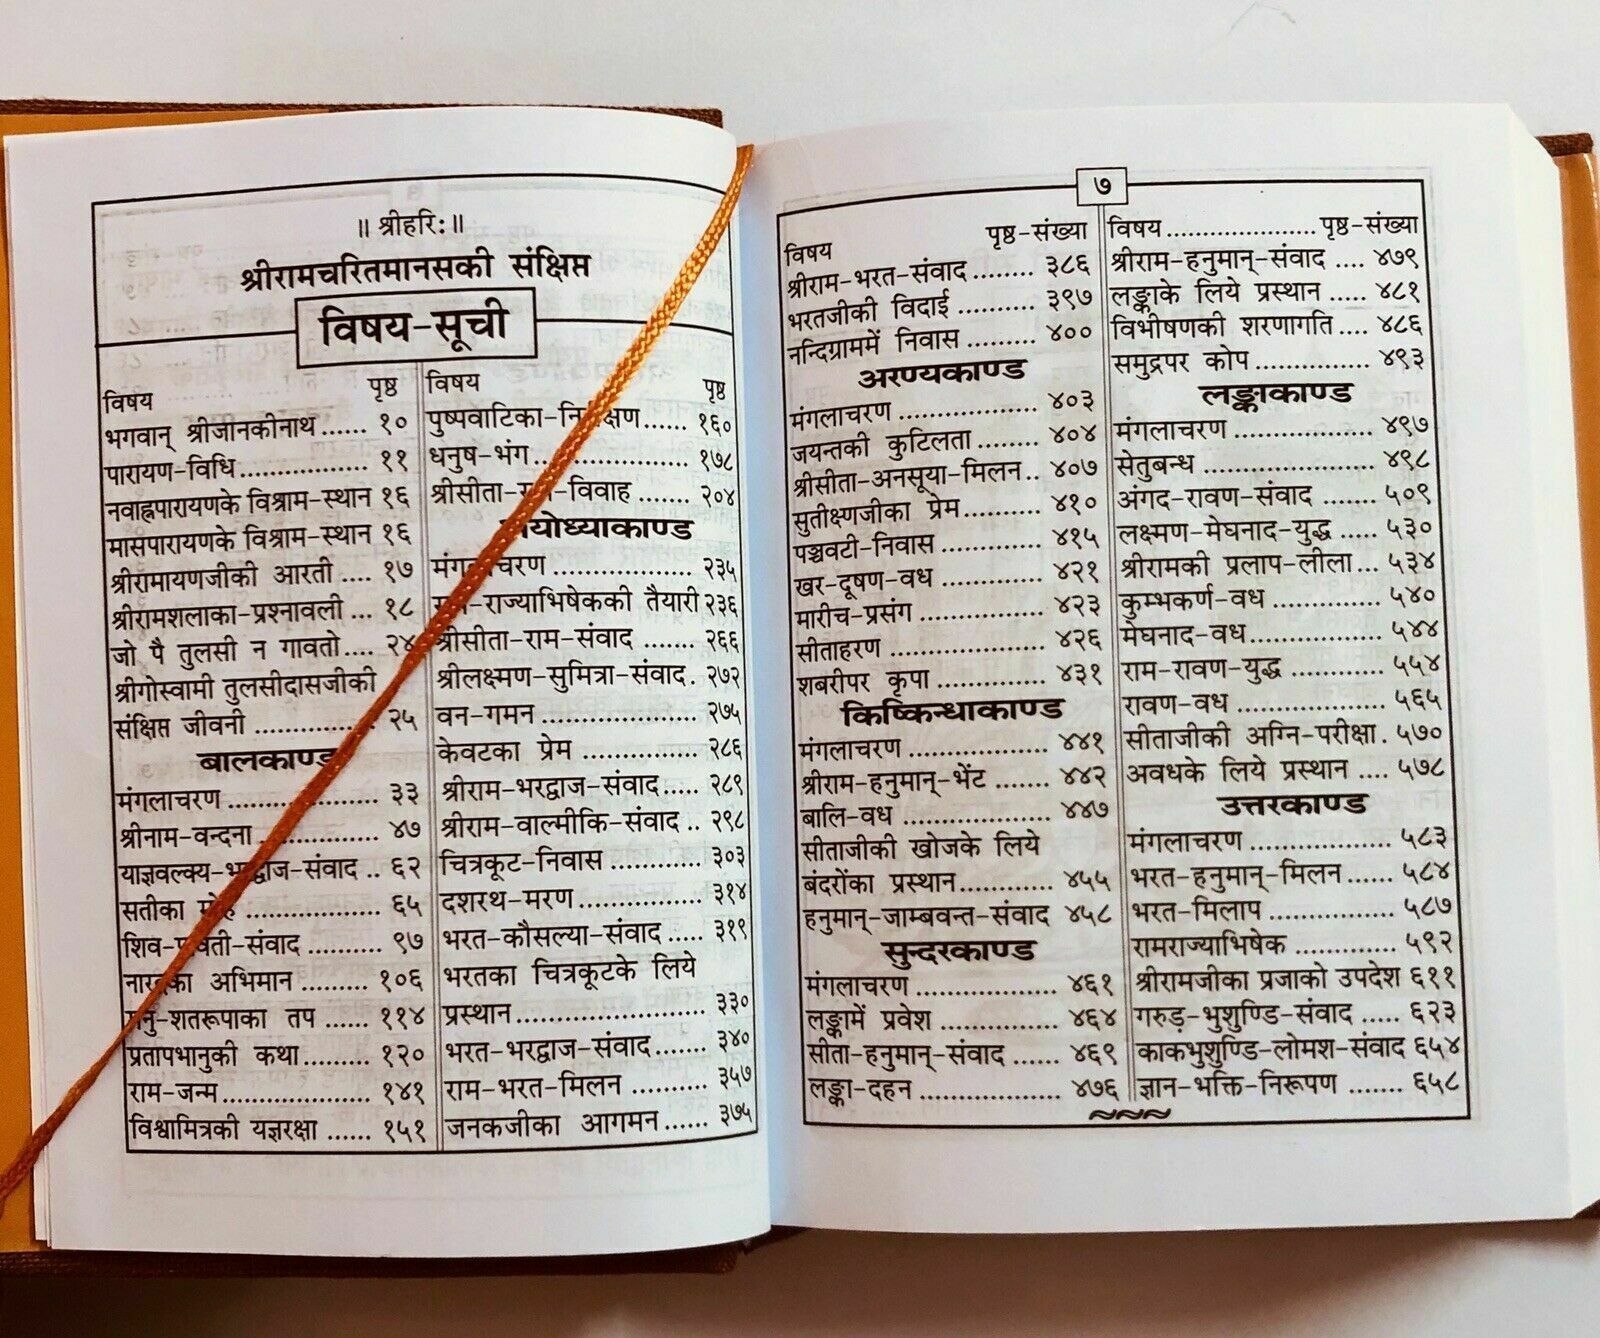 ॥ श्रीहरिः॥
श्रीरामचरितमानसकी संक्षिप्त
विषय-सूची
विषय पृष्ठ
भगवान् श्रीजानकीनाथ ...... १०
पारायण-विधि ................ ११
नवाह्नपारायणके विश्राम-स्थान १६
मासपारायणके विश्राम-स्थान १६
श्रीरामायणजीकी आरती .... १७
श्रीरामशलाका-प्रश्नावली ... १८
जो पै तुलसी न गावतो .... २४
श्रीगोस्वामी तुलसीदासजीकी
संक्षिप्त जीवनी ............... २५
बालकाण्ड
मंगलाचरण ................... ३३
श्रीनाम-वन्दना ............... ४७
याज्ञवल्क्य-भरद्वाज-संवाद .. ६२
सतीका मोह .................. ६५
शिव-पार्वती-संवाद .......... ९७
नारदका अभिमान ......... १०६
मनु-शतरूपाका तप ...... ११४
प्रतापभानुकी कथा......... १२०
राम-जन्म .................... १४१
विश्वामित्रकी यज्ञरक्षा ...... १५१
विषय पृष्ठ
पुष्पवाटिका-निरीक्षण...... १६०
धनुष-भंग .................... १७८
श्रीसीता-राम-विवाह ....... २०४
अयोध्याकाण्ड
मंगलाचरण .................. २३५
राम-राज्याभिषेककी तैयारी २३६
श्रीसीता-राम-संवाद ....... २६६
श्रीलक्ष्मण-सुमित्रा-संवाद. २७२
वन-गमन .................... २७५
केवटका प्रेम ................ २८६
श्रीराम-भरद्वाज-संवाद..... २८९
श्रीराम-वाल्मीकि-संवाद .. २९८
चित्रकूट-निवास ............ ३०३
दशरथ-मरण ................ ३१४
भरत-कौसल्या-संवाद ..... ३१९
भरतका चित्रकूटके लिये
प्रस्थान ........................ ३३०
भरत-भरद्वाज-संवाद....... ३४०
राम-भरत-मिलन ........... ३५७
जनकजीका आगमन ...... ३७५
७
विषय पृष्ठ-संख्या
श्रीराम-भरत-संवाद ........ ३८६
भरतजीकी विदाई .......... ३९७
नन्दिग्राममें निवास ......... ४००
अरण्यकाण्ड
मंगलाचरण .................. ४०३
जयन्तकी कुटिलता ........ ४०४
श्रीसीता-अनसूया-मिलन.. ४०७
सुतीक्ष्णजीका प्रेम .......... ४१०
पञ्चवटी-निवास ............ ४१५
खर-दूषण-वध ............. ४२१
मारीच-प्रसंग ................ ४२३
सीताहरण .................... ४२६
शबरीपर कृपा .............. ४३१
किष्किन्धाकाण्ड
मंगलाचरण .................. ४४१
श्रीराम-हनुमान्-भेंट ....... ४४२
बालि-वध .................... ४४७
सीताजीकी खोजके लिये
बंदरोंका प्रस्थान............ ४५५
हनुमान्-जाम्बवन्त-संवाद ४५८
सुन्दरकाण्ड
मंगलाचरण .................. ४६१
लङ्कामें प्रवेश ................ ४६४
सीता-हनुमान्-संवाद ...... ४६९
लङ्का-दहन ................... ४७६
विषय..................... पृष्ठ-संख्या
श्रीराम-हनुमान्-संवाद .... ४७९
लङ्काके लिये प्रस्थान ..... ४८१
विभीषणकी शरणागति .... ४८६
समुद्रपर कोप ................ ४९३
लङ्काकाण्ड
मंगलाचरण .................. ४९७
सेतुबन्ध ....................... ४९८
अंगद-रावण-संवाद ....... ५०९
लक्ष्मण-मेघनाद-युद्ध ..... ५३०
श्रीरामकी प्रलाप-लीला... ५३४
कुम्भकर्ण-वध .............. ५४०
मेघनाद-वध.................. ५४४
राम-रावण-युद्ध ............ ५५४
रावण-वध .................... ५६५
सीताजीकी अग्नि-परीक्षा . ५७०
अवधके लिये प्रस्थान .... ५७८
उत्तरकाण्ड
मंगलाचरण .................. ५८३
भरत-हनुमान्-मिलन...... ५८४
भरत-मिलाप ................ ५८७
रामराज्याभिषेक ............. ५९२
श्रीरामजीका प्रजाको उपदेश ६११
गरुड़-भुशुण्डि-संवाद ..... ६२३
काकभुशुण्डि-लोमश-संवाद ६५४
ज्ञान-भक्ति-निरूपण ....... ६५८